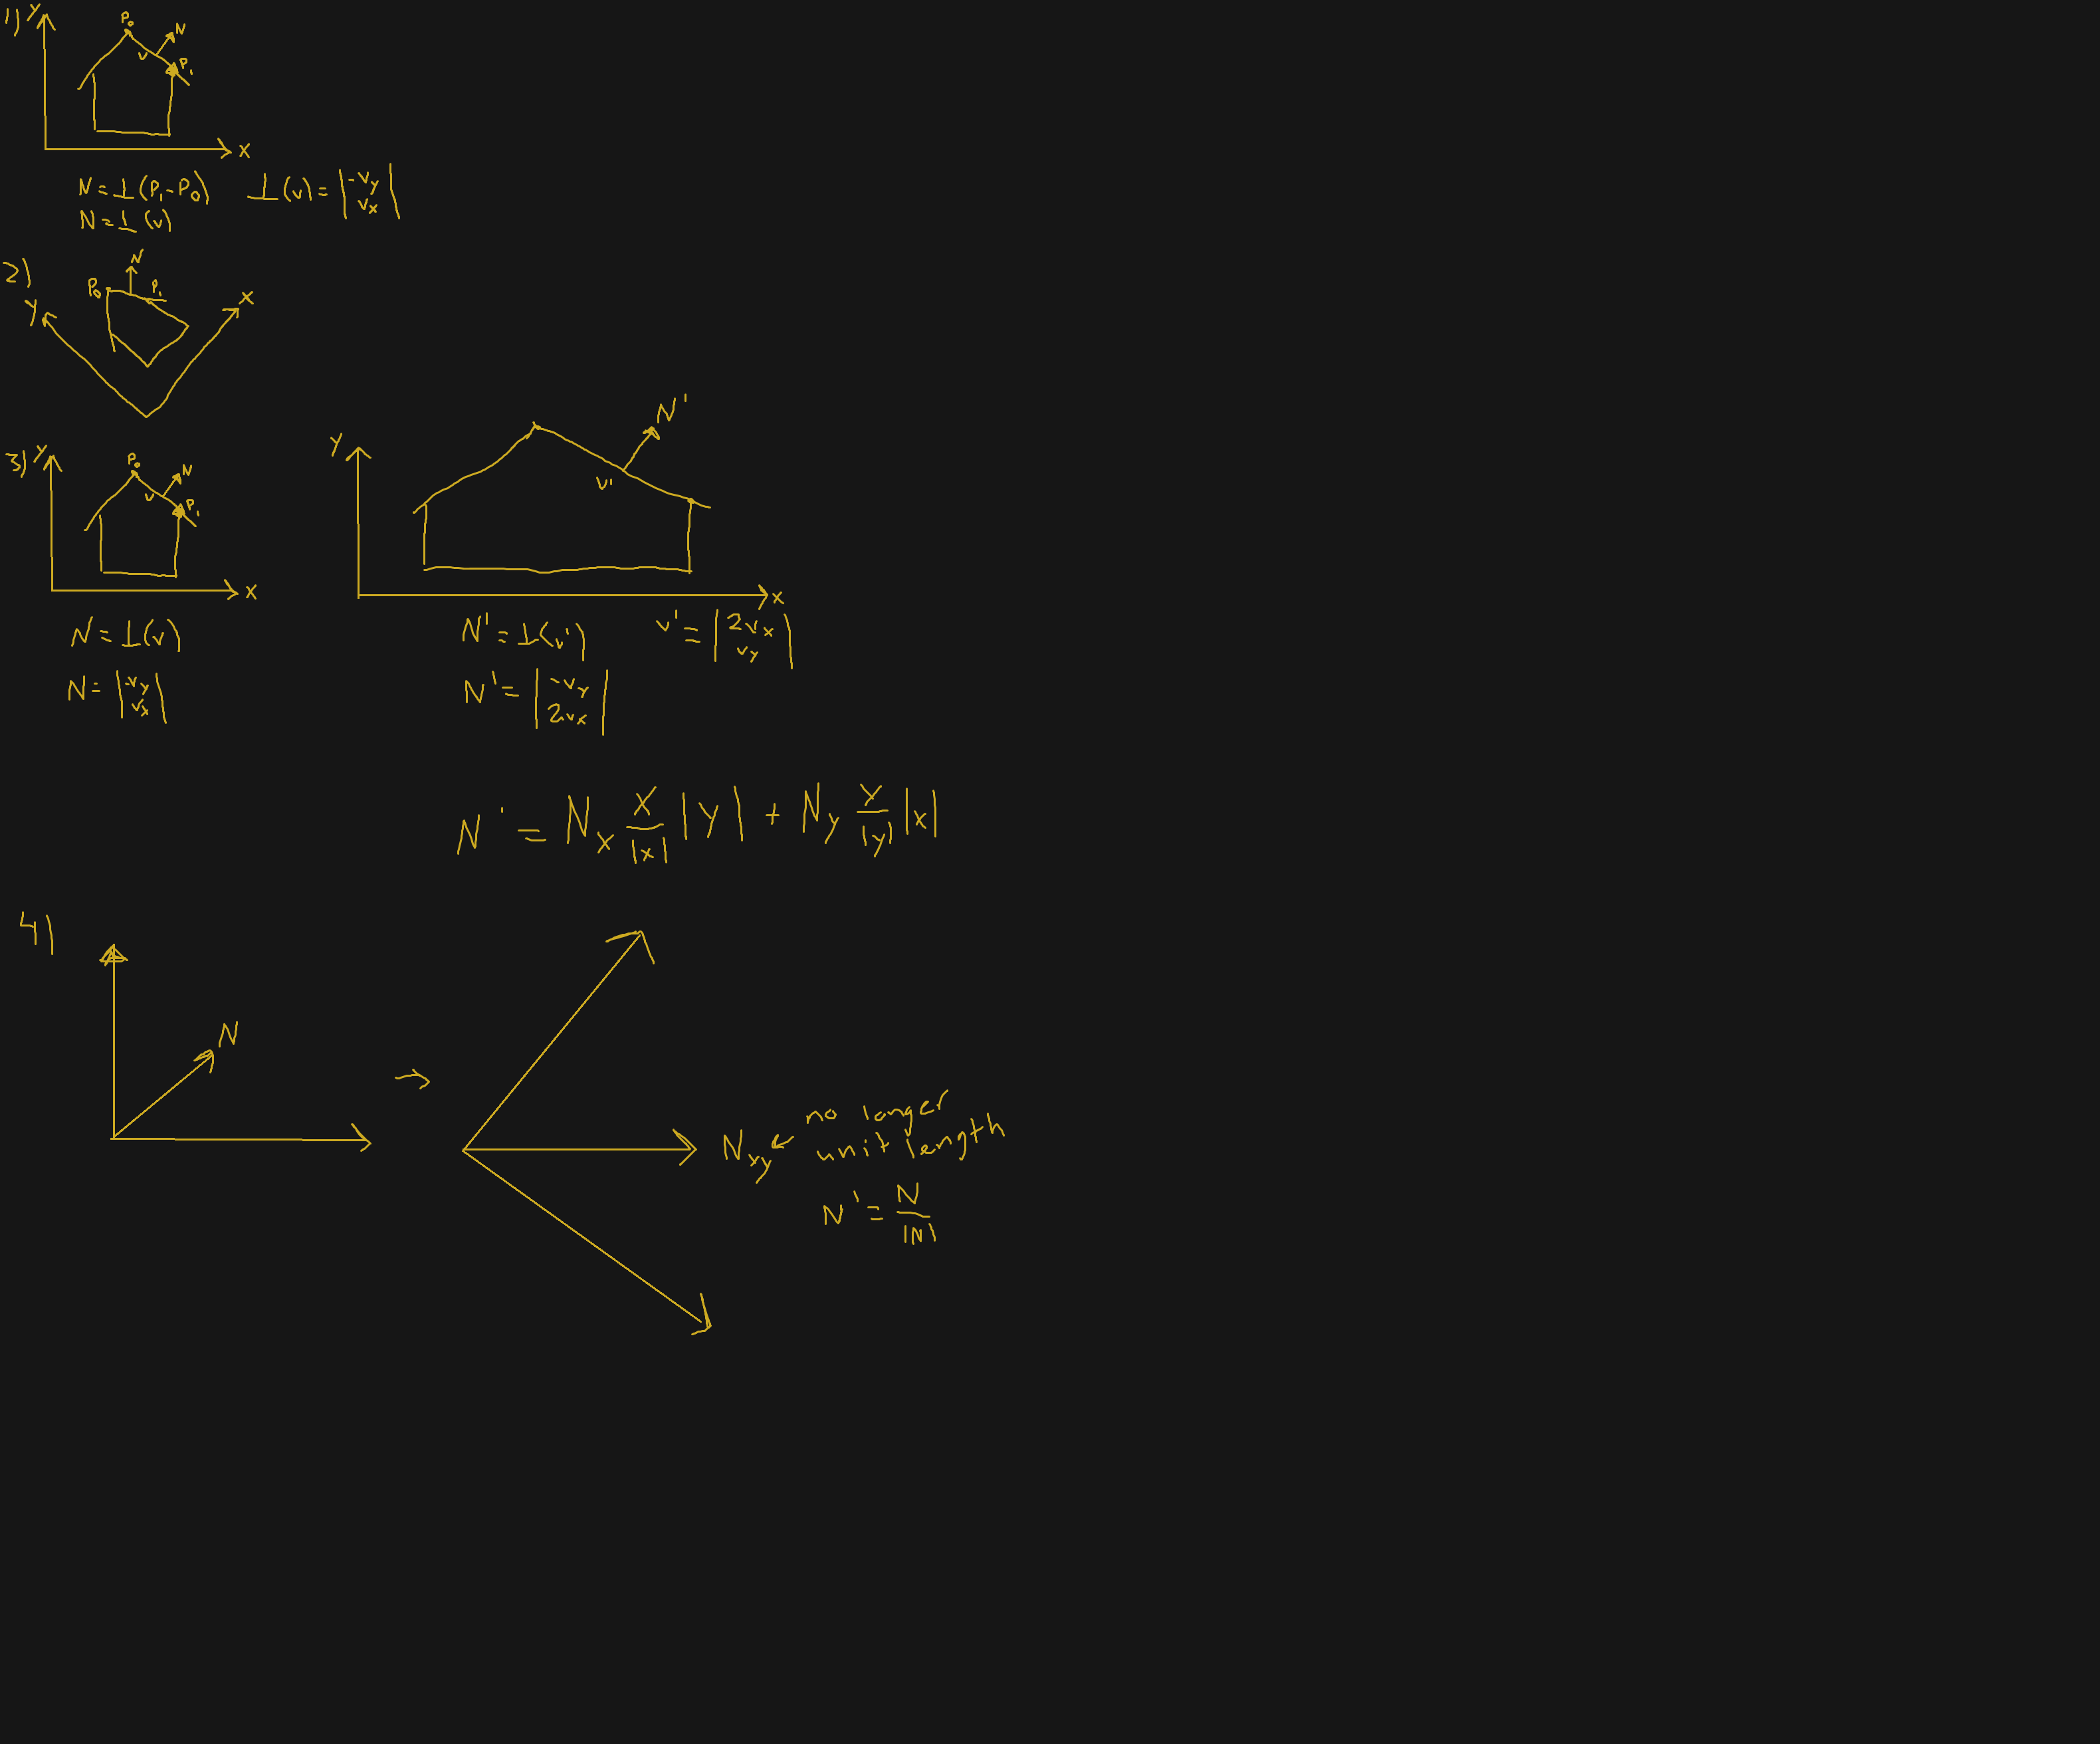 1) y
P₀
N
v
P₁
x
N = ⊥(P₁ - P₀)   ⊥(v) = |-vy vx|
N = ⊥(v)
2)
N
P₀ P₁
y x
3) y
P₀
N
v
P₁
x
N = ⊥(v)
N = |-vy vx|
y
N'
v'
x
N' = ⊥(v')   v' = |2vx vy|
N' = |-vy 2vx|
N' = Nx x/|x| |y| + Ny y/|y| |x|
4)
N
→
Nxy ← no longer
unit length
N' = N/|N|